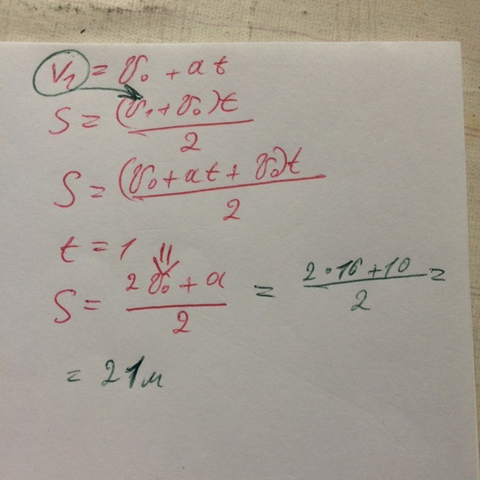 V₁ = v₀ + at
S = (v₁ + v₀)t / 2
S = (v₀ + at + v₀)t / 2
t = 1
S = 2v₀ + a / 2 = 2 · 16 + 10 / 2 =
= 21 м